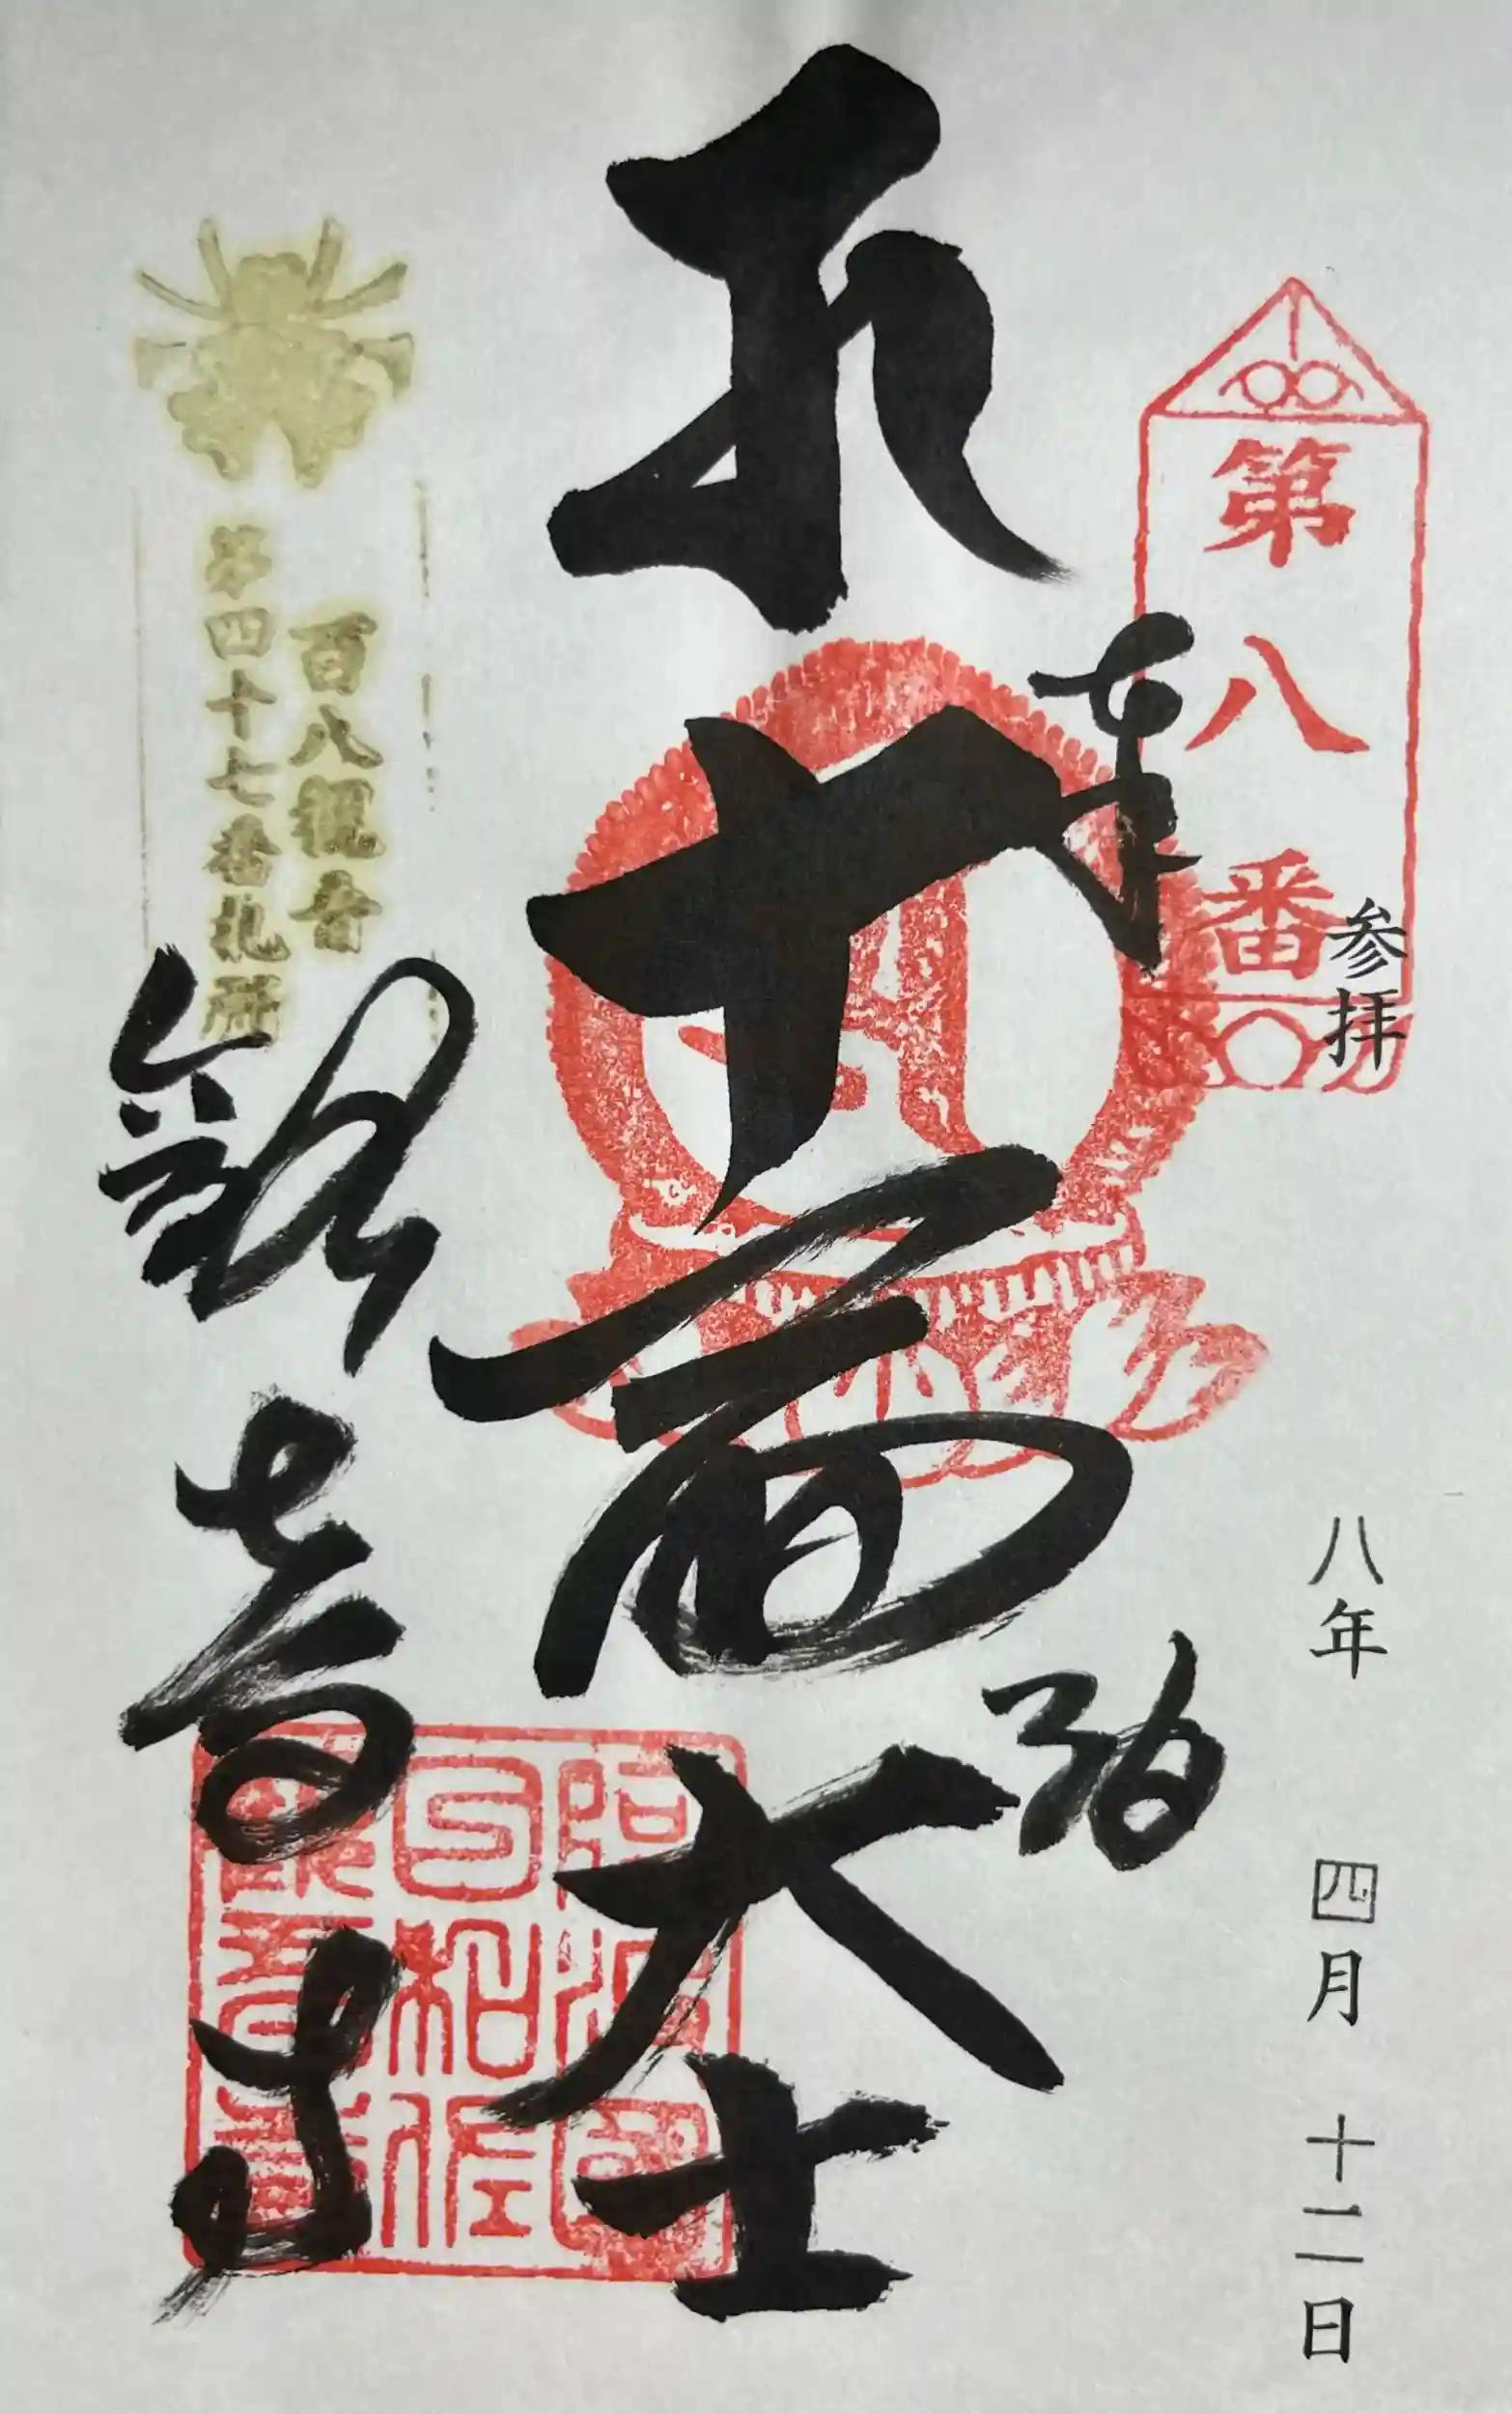 第八番
参拝
八年 四月 十二日
奉
十一面大士
百八観音
第四十七番札所
観音寺
阿波国
日和佐